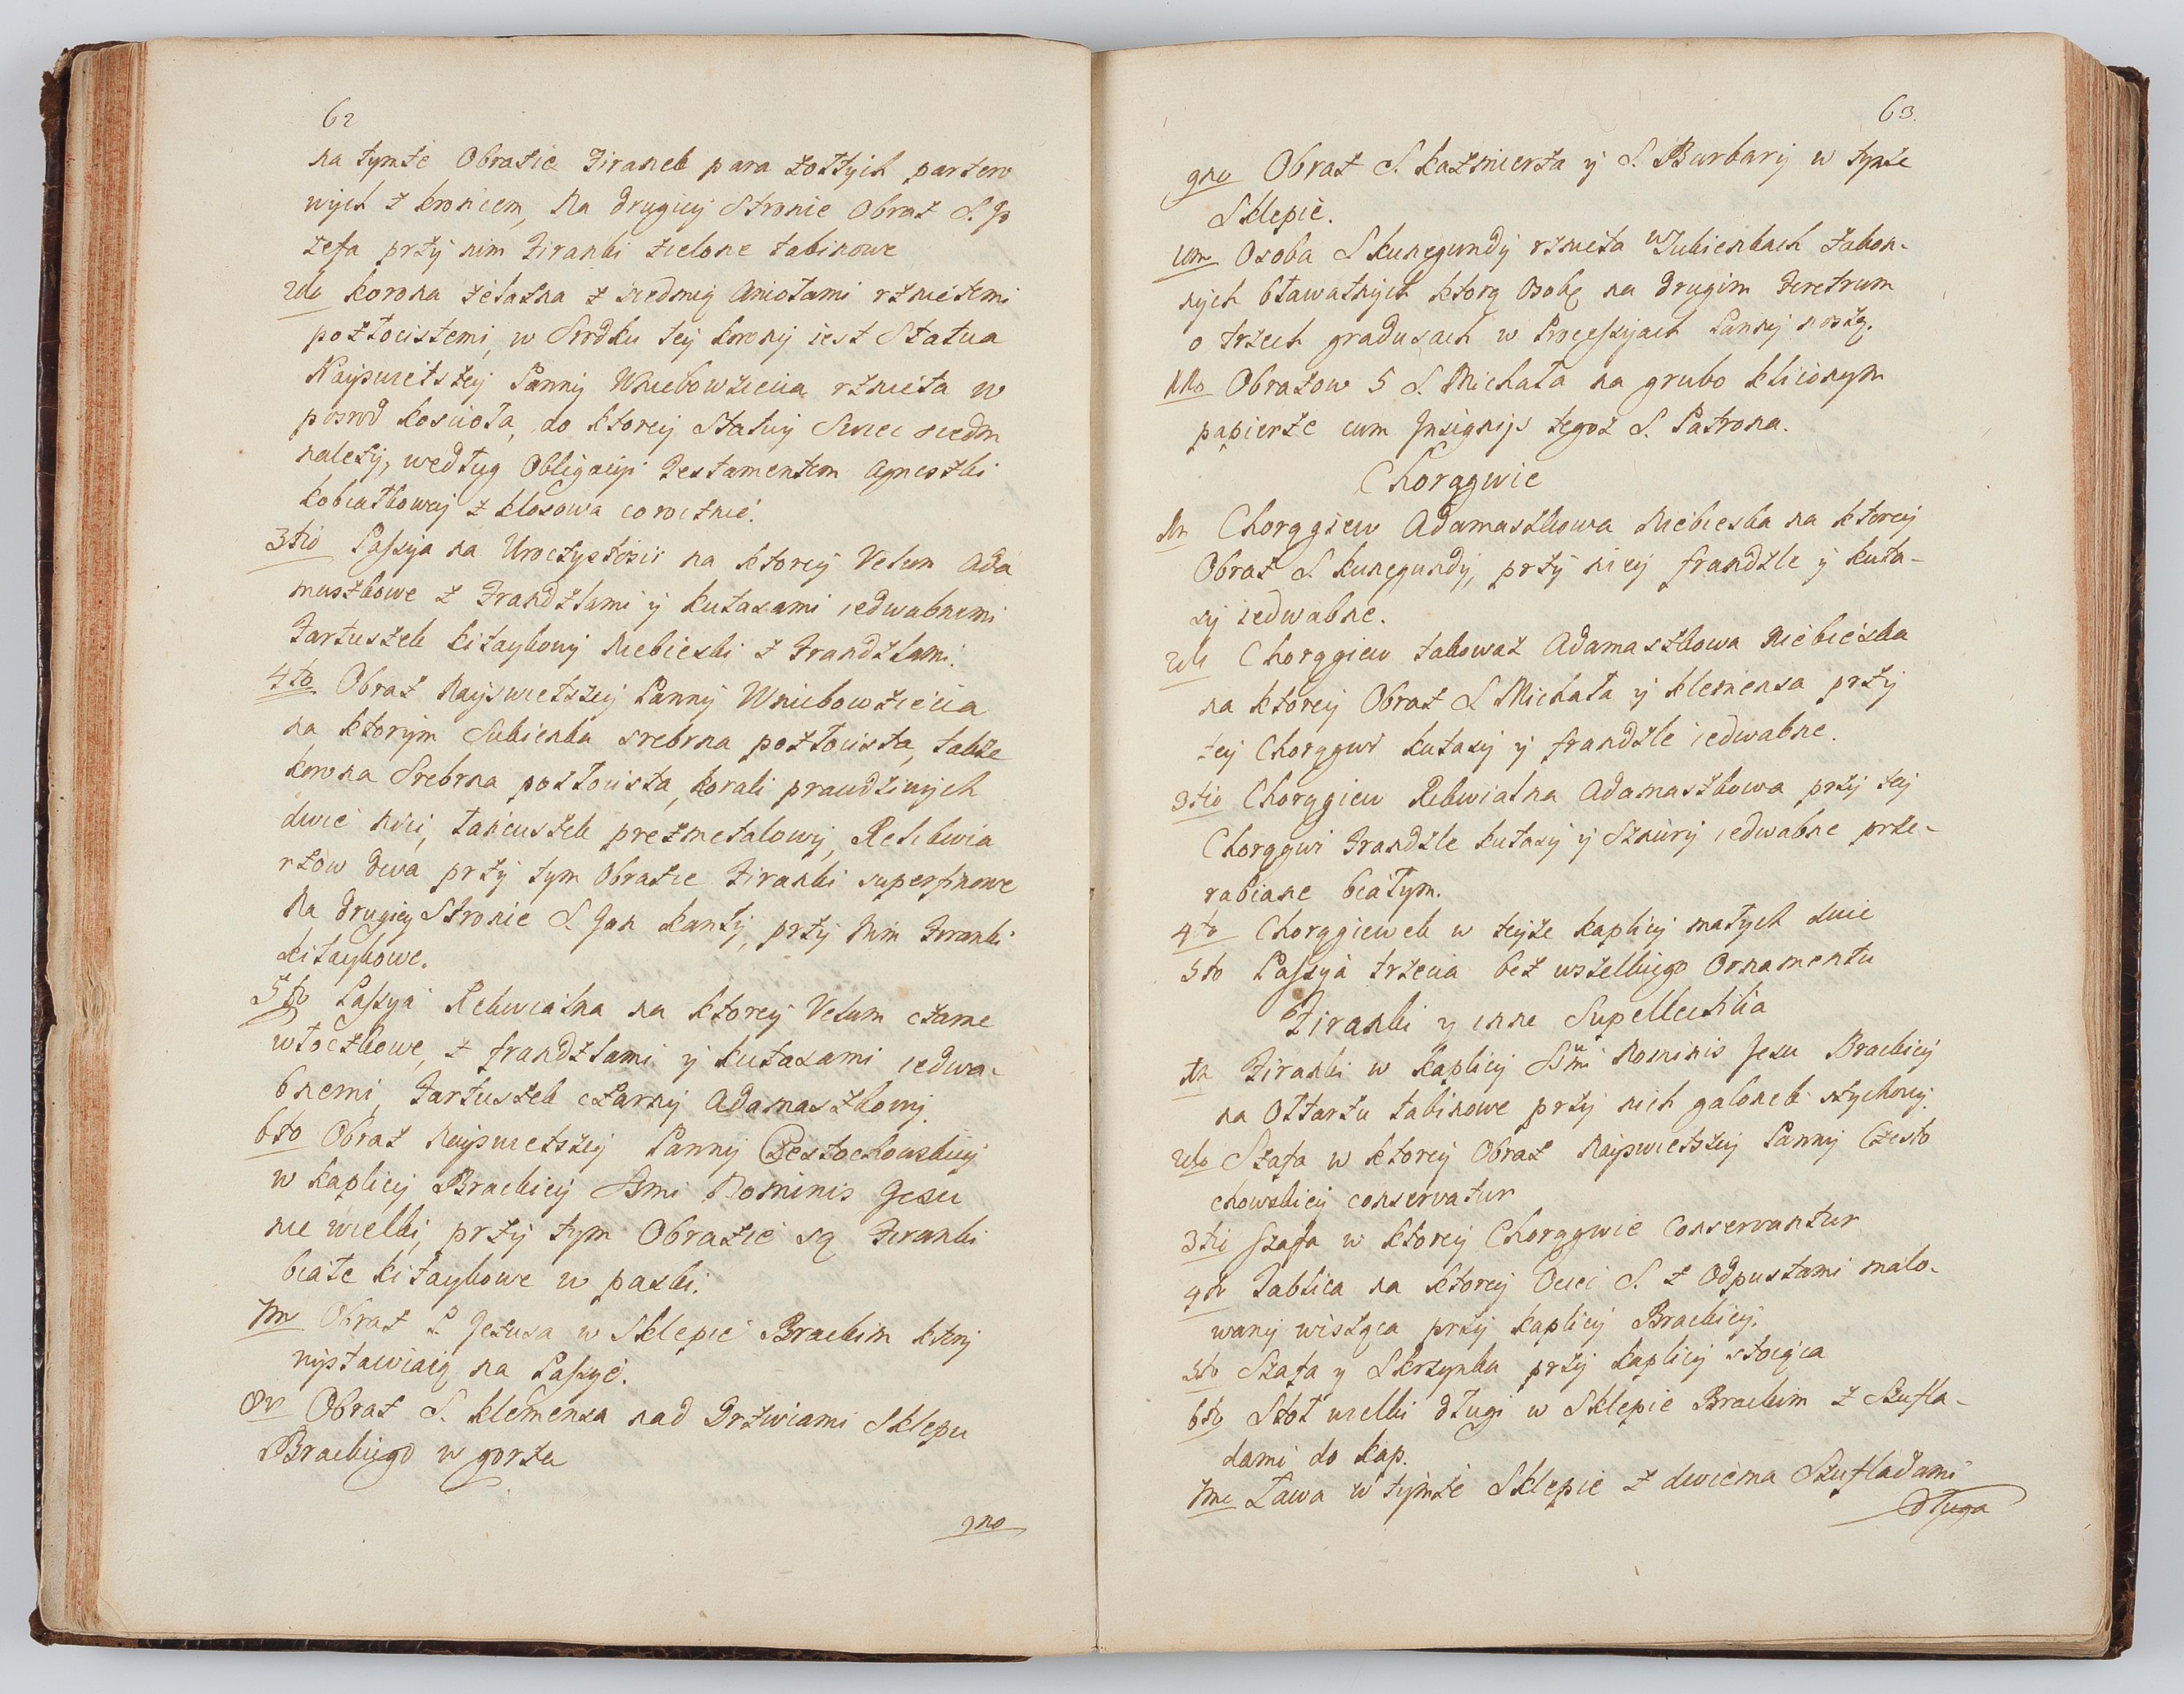 62
na tymże Obrazie Firanek para żołtych parterο
wych z kroniem, Na drugiey Stronie Obraz S. Jo
zefa przy nim Firanki zielone tabinowe
2do korona żelazna z siedmią Aniołami rzniętemi
pozłocistemi, w Srodku tey korony iest Statua
Nayswiętszey Panny Wniebowzięcia rznięta w
posrod koscioła, do ktorey Statuy Swiec siedm
należy, według Obligacyi Testamentem Agnieszki
kobiałkowey z klosowa corocznie.
3tio Passya na Uroczystości na ktorey Velum Ada
maszkowe z Frandzlami y kutasami iedwabnemi
Fartuszek kitaykowy Niebieski z Frandzlami.
4to Obraz Nayswiętszey Panny Wniebowzięcia
na ktorym Sukienka srebrna pozłocista, także
korona Srebrna pozłocista, korali prawdziwych
dwie nici, łancuszek prezmetalowy, Relikwia
rzow dwa przy tym Obrazie Firanki superfinowe
Na drugiey Stronie S. Jan kanty, przy Nim Firanki
kitaykowe.
5to Passya Rekwialna na ktorey Velum czarne
włoczkowe, z frandzlami y kutasami iedwa-
bnemi, Fartuszek czarny Adamaszkowy.
6to Obraz Nayswiętszey Panny Częstochowskiey
w kaplicy Brackiey SSmi Nominis Jesu
nie wielki, przy tym Obrazie są Firanki
białe kitaykowe w paski.
7mo Obraz P. Jezusa w Sklepie Brackim ktory
wystawiaią na Passye.
8vo Obraz S. klemensa nad Drzwiami Sklepu
Brackiego w gorze
9no
63.
9no Obraz S. kazmierza y S. Barbary w tymże
Sklepie.
10mo Osoba S kunegundy rznięta w Sukienkach zakon-
nych bławatnych ktorą Osobę na drugim Feretrum
o trzech gradusach w Processyach Panny noszą.
11mo Obrazow 5 S. Michała na grubo kliionym
papierze cum Insignijs tegoż S. Patrona.
Chorągwie
1mo Chorągiew Adamaszkowa Niebieska na ktorey
Obraz S. kunegundy, przy niey frandzle y kuta-
sy iedwabne.
2do Chorągiew takowaz Adamaszkowa Niebieska
na ktorey Obraz S Michała y klemensa przy
tey Chorągwi kutasy y frandzle iedwabne.
3tio Chorągiew Rekwialna Adamaszkowa przy tey
Chorągwi Frandzle kutasy y Sznury iedwabne prze-
rabiane białym.
4to Chorągiewek w teyże kaplicy małych dwie
5to Passya trzecia bez wszelkiego Ornamentu
Firanki y inne Supellectilia
1mo Firanki w kaplicy SSmi Nominis Jesu Brackiey
na Ołtarzu tabinowe przy nich galonek szychowy.
2do Szafa w ktorey Obraz Nayswiętszey Panny Często
chowskiey conservatur
3tio Szafa w ktorey Chorągwie Conservantur
4to Tablica na ktorey Oyciec S. z Odpustami malo-
wany wisząca przy kaplicy Brackiey.
5to Szafa y Skrzynka przy kaplicy stoiąca
6to Stoł wielki długi w Sklepie Brackim z Szufla-
dami do kap.
7mo Ława w tymże Sklepie z dwiema Szufladami
długa